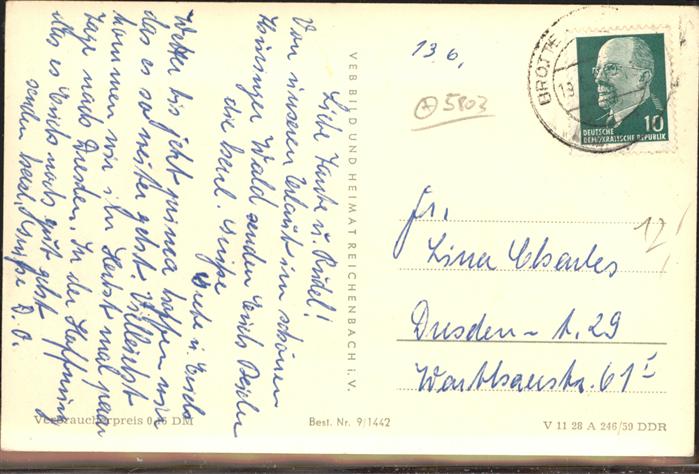 13.6.
5803
BROTTE
13.
DEUTSCHE
DEMOKRATISCHE REPUBLIK
10
Liebe Tante u. Rudel!
Von unseren Urlaub im schönen
Thüringer Wald senden Euch
die herzl. Grüße
Wetter bis jetzt prima hoffen wir
das es so weiter geht. Villeicht
kommen wir im Herbst mal paar
Tage nach Dresden. In der Hoffnung
das es Euch noch gut geht
senden herzl. Grüße
VEB BILD UND HEIMAT REICHENBACH i. V.
Fr.
Lina Charles
Dresden - A. 29
Warthaerstr. 61 I
17
Verbraucherpreis 0,16 DM
Best. Nr. 9/1442
V 11 28 A 246/59 DDR